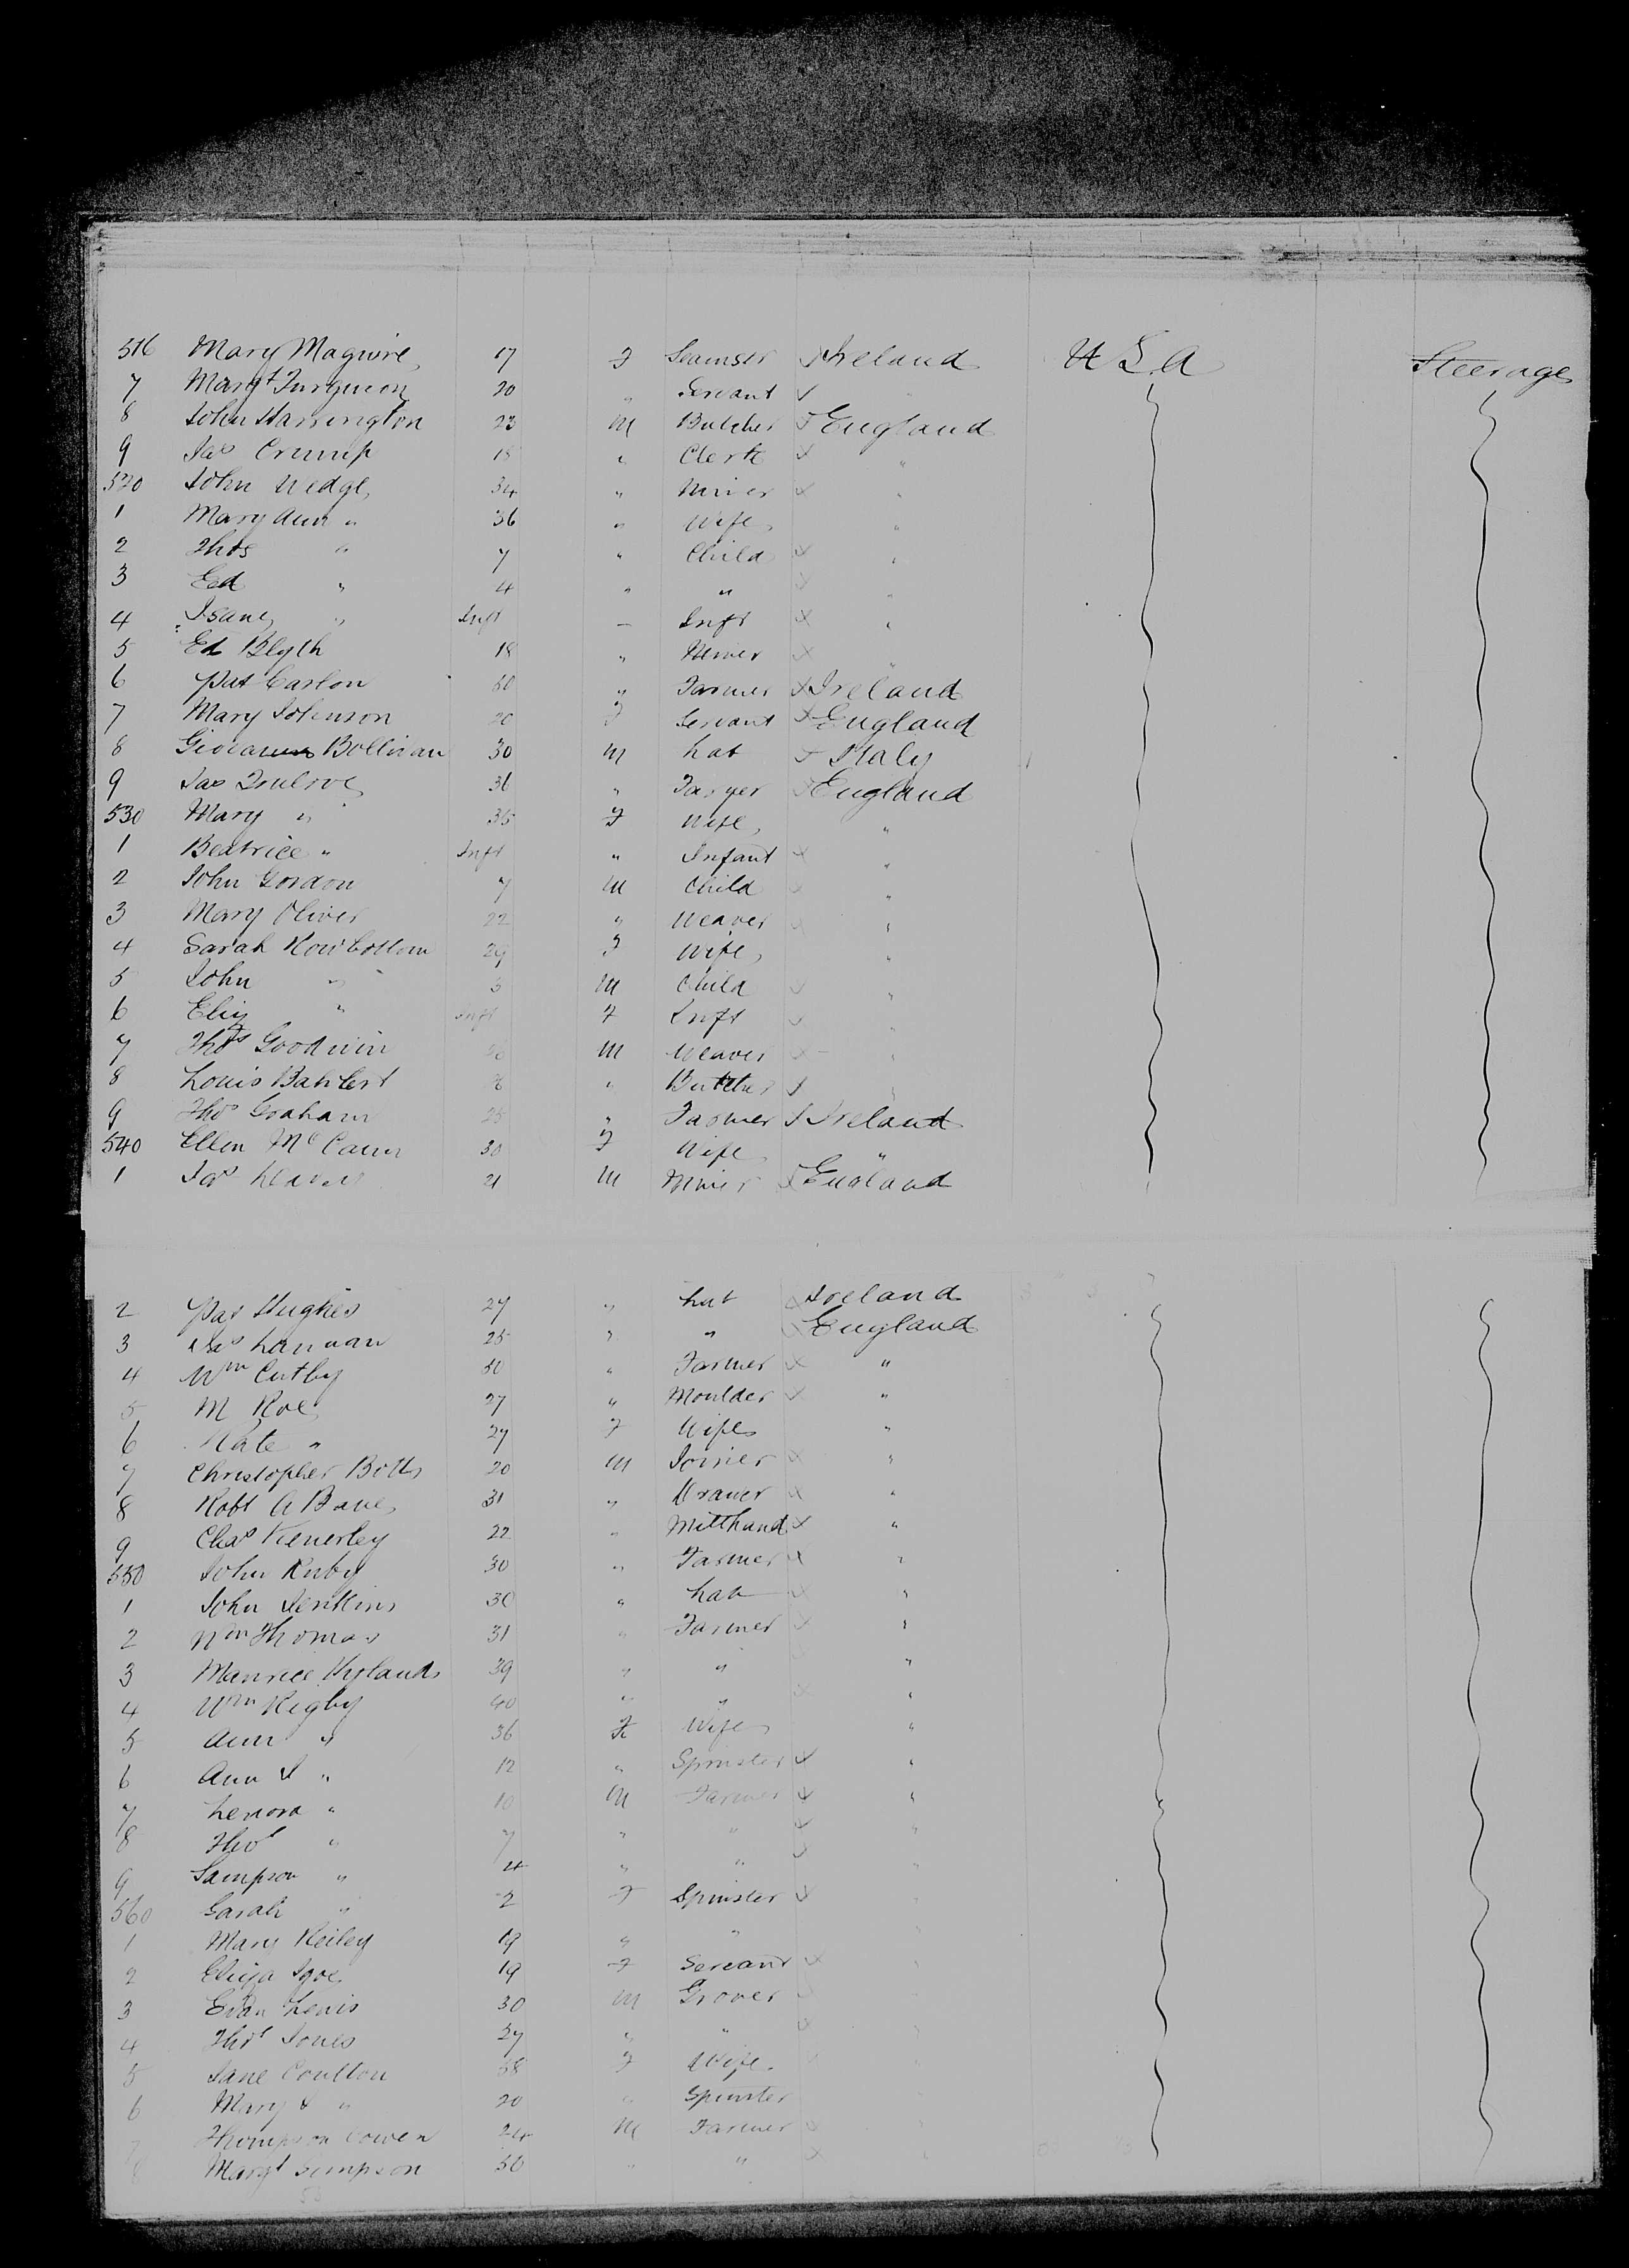 516 Mary Maguire 17 F Seamstr Ireland U.S.A Steerage
7 Margt Furguson 20 " Servant "
8 John Harrington 23 M Butcher England
9 Jas Crump 18 " Clerk "
520 John Wedge 34 " Miner "
1 Mary Ann " 36 " Wife "
2 Thos " 7 " Child "
3 Ed " 4 " " "
4 Isaac " Inft " Inft "
5 Ed Blyth 18 " Miner "
6 Pat Carlon 50 " Farmer Ireland
7 Mary Johnson 20 F Servant England
8 30 M Lab Italy
9 Jas Trulove 36 " England
530 Mary " 35 F Wife "
1 Beatrice " Inft " Infant "
2 John Gordon 7 M Child "
3 Mary Oliver 22 " Weaver "
4 Sarah Rowbottom 29 F Wife "
5 John " 3 M Child "
6 Eliz " Inft F Inft "
7 Thos Goodwin M Weaver "
8 Louis " Butcher "
9 Thos Graham 25 " Farmer Ireland
540 Ellen McCann 30 F Wife "
1 Jas 21 M Miner England
2 Pat Hughes 27 " Lab Ireland
3 Jas Lannan 25 " " England
4 Wm Cutby 50 " Farmer "
5 M Roe 27 " Moulder "
6 Kate " 27 F Wife "
7 Christopher Botts 20 M Joiner "
8 Robt A Bane 31 " Drawer "
9 Chas Kenerley 22 " Millhand "
550 John Ruby 30 " Farmer "
1 John Jenkins 30 " Lab "
2 Wm Thomas 31 " Farmer "
3 Maurice Hylands 39 " " "
4 Wm Rigby 40 " " "
5 Ann " 36 F Wife "
6 Ann J " 12 " Spinster "
7 Lenora " 10 M Farmer "
8 Thos " 7 " " "
9 Sampson " 4 " " "
560 Sarah " 2 F Spinster
1 Mary Reiley 19 " "
2 Eliza Igoe 19 F Servant
3 Evan Lewis 30 M Grover
4 Thos Jones 27 " "
5 Jane Coulton 58 F Wife
6 Mary J " 20 " Spinster
7 Thompson Cowen 24 M Farmer
8 Margt Simpson 50 " "